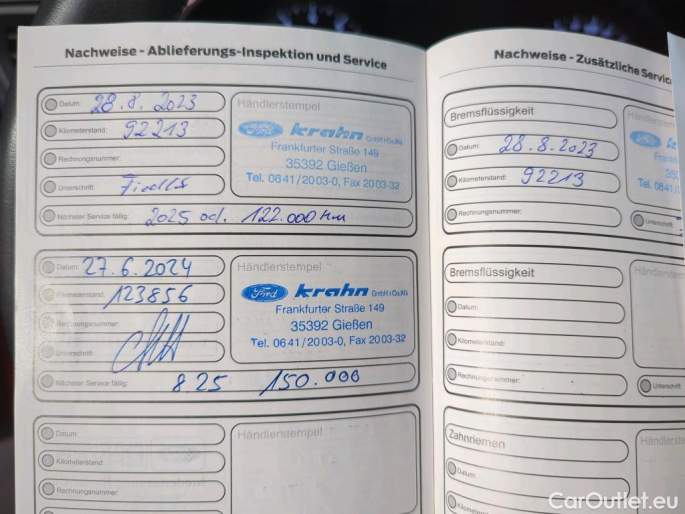 Nachweise - Ablieferungs-Inspektion und Service
Datum: 28.8.2023
Kilometerstand: 92213
Rechnungsnummer:
Unterschrift:
Nächster Service fällig: 2025 od. 122.000 km
Händlerstempel
Ford krahn GmbH & Co.KG
Frankfurter Straße 149
35392 Gießen
Tel. 0641/2003-0, Fax 2003-32
Datum: 27.6.2024
Kilometerstand: 123856
Rechnungsnummer:
Unterschrift:
Nächster Service fällig: 8.25 150.000
Händlerstempel
Ford krahn GmbH & Co.KG
Frankfurter Straße 149
35392 Gießen
Tel. 0641/2003-0, Fax 2003-32
Datum:
Kilometerstand:
Rechnungsnummer:
Händlerstempel
Nachweise - Zusätzliche Servic
Bremsflüssigkeit
Datum: 28.8.2023
Kilometerstand: 92213
Rechnungsnummer:
Händlerstem
Ford
Tel. 0641/
Unterschrift:
Bremsflüssigkeit
Datum:
Kilometerstand:
Rechnungsnummer:
Händlerstem
Unterschrift
Zahnriemen
Datum:
Kilometerstand:
Händlerste
CarOutlet.eu